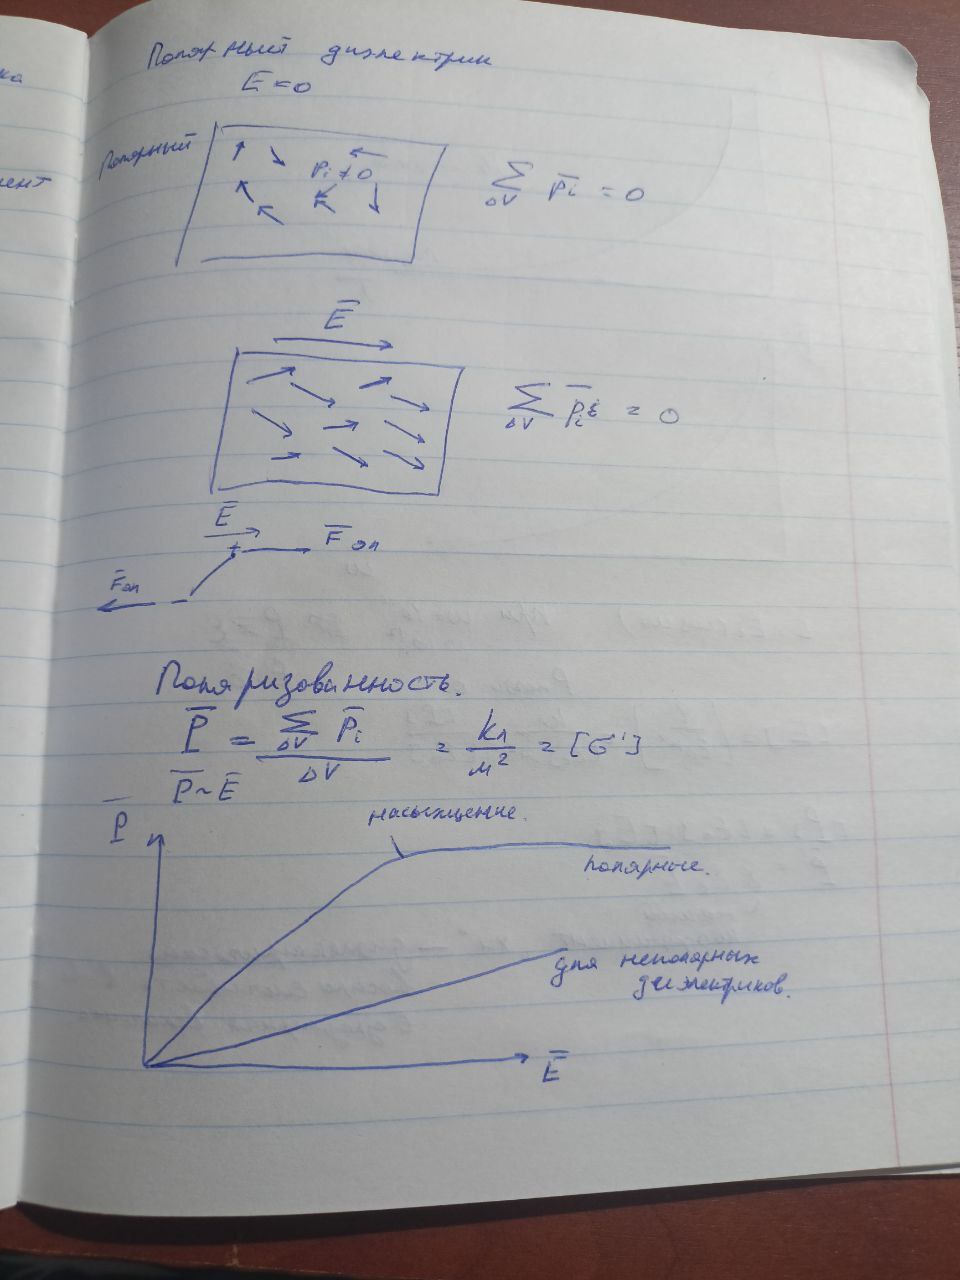 ка
мент
Полярный диэлектрик
E = 0
Полярный
pᵢ ≠ 0
∑ p̅ᵢ = 0
ΔV
E̅
∑ p̅ᵢ = 0
ΔV
E̅
+
F̅эл
F̅эл
−
Поляризованность.
P̅ = ∑ p̅ᵢ / ΔV = Кл/м² = [σ']
ΔV
P̅ ~ E̅
P̅
насыщение.
полярные.
для неполярных
диэлектриков.
E̅